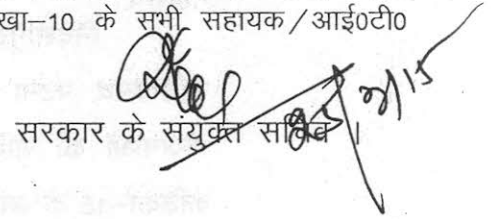 खा–10 के सभी सहायक / आई0टी0
सरकार के संयुक्त सचिव ।